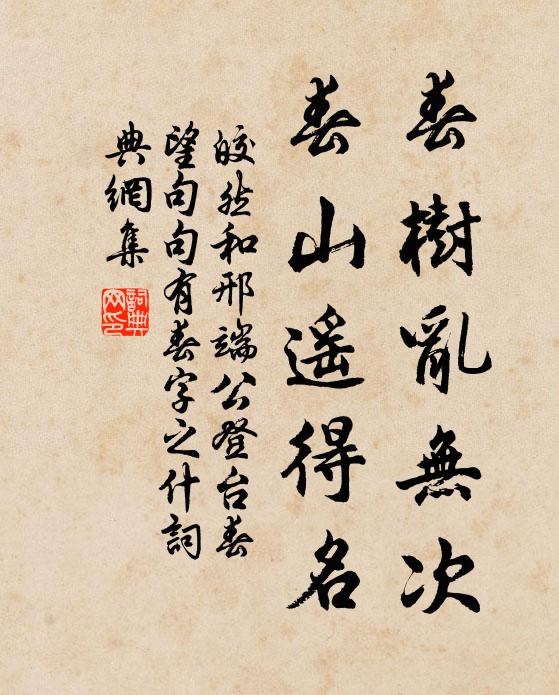 春樹亂無次
春山遥得名
皎然和邢端公登台春
望句句有春字之什詞
典網集
詞典
网印